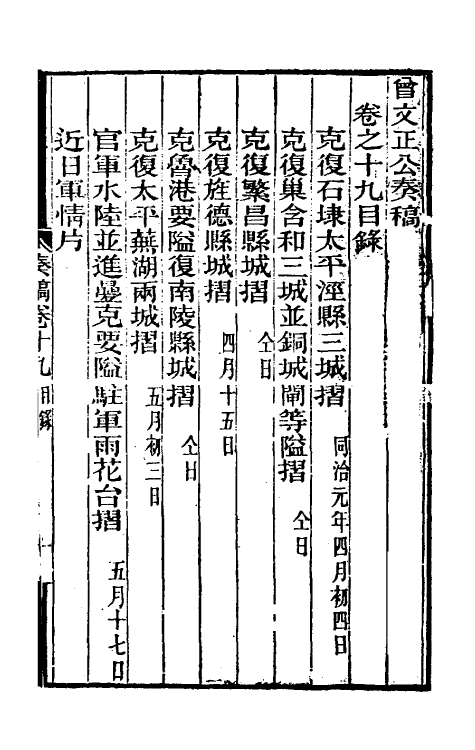 曾文正公奏稿
卷之十九目錄
克復石埭太平涇縣三城摺 同治元年四月初四日
克復巢含和三城並銅城閘等隘摺 仝日
克復繁昌縣城摺 仝日
克復旌德縣城摺 四月十五日
克魯港要隘復南陵縣城摺 仝日
克復太平蕪湖兩城摺 五月初三日
官軍水陸並進疊克要隘駐軍雨花台摺 五月十七日
近日軍情片
奏稿卷十九目錄 一